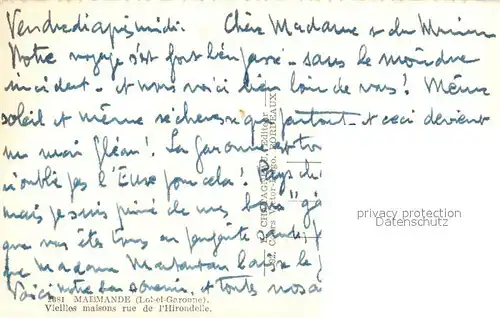 Vendredi après midi. Chère Madame
Notre voyage s'est fort bien passé - sans le moindre
incident - et nous voici bien loin de vous! Même
soleil et même sécheresse que partout - et ceci devient
un vrai fléau! La Garonne est
n'oublie pas l'Eure pour cela! Pays du
mais je suis privé de mes bons "
que vous êtes tous en parfaite santé,
que madame baisse le
Voici notre bon souvenir, et toutes nos
1381 MARMANDE (Lot-et-Garonne).
Vieilles maisons rue de l'Hirondelle.
éditeur
Cours Victor-Hugo, BORDEAUX
privacy protection
Datenschutz